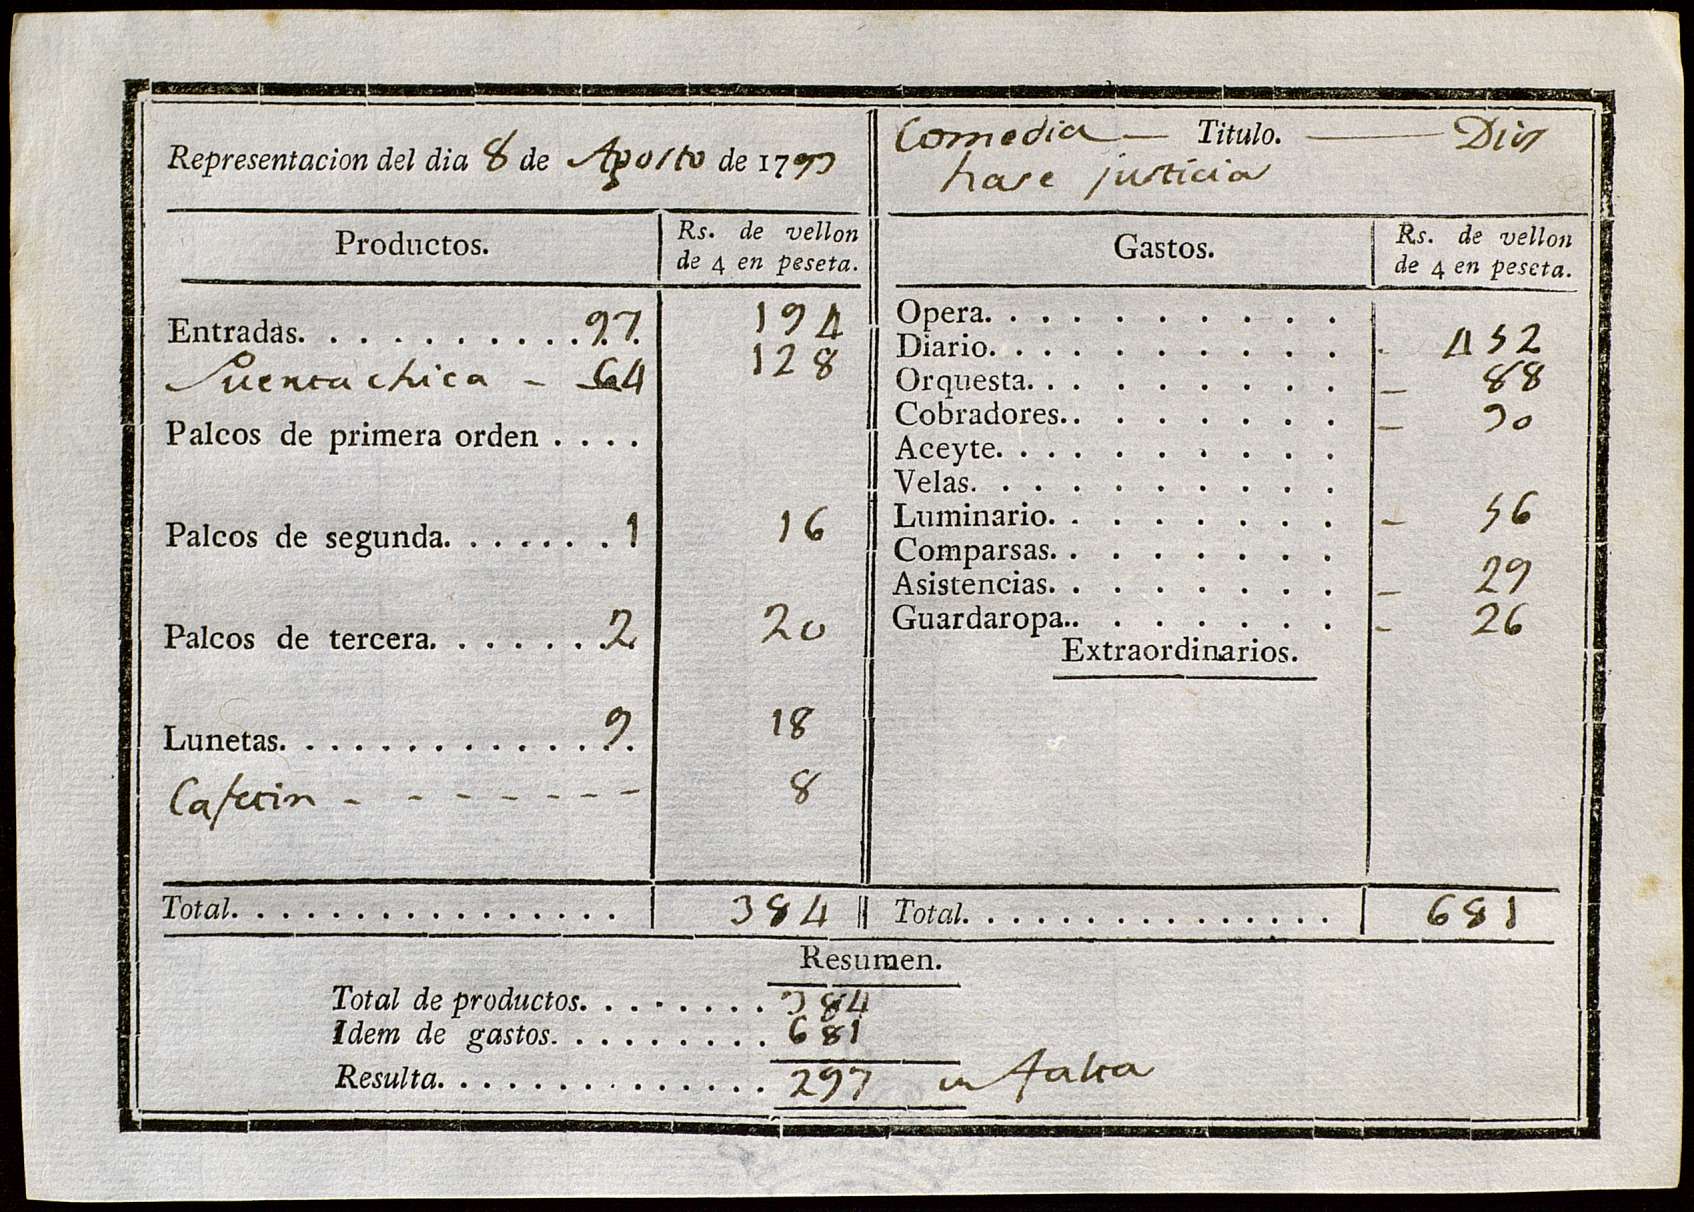 Representacion del dia 8 de Agosto de 1793
Comedia — Titulo. — Dios
hase justicia
Productos.
Rs. de vellon
de 4 en peseta.
Entradas. . . . . . . . . . . 97. 194
Puerta chica - 64 128
Palcos de primera orden . . . .
Palcos de segunda. . . . . . . 1 16
Palcos de tercera. . . . . . . 2 20
Lunetas. . . . . . . . . . . . . 9. 18
Cafetin - - - - - - - - 8
Total. . . . . . . . . . . . . . . . 384
Gastos.
Rs. de vellon
de 4 en peseta.
Opera. . . . . . . . . . .
Diario. . . . . . . . . . . 452
Orquesta. . . . . . . . . — 88
Cobradores.. . . . . . . . — 30
Aceyte. . . . . . . . . . .
Velas. . . . . . . . . . .
Luminario. . . . . . . . - 56
Comparsas. . . . . . . .
Asistencias. . . . . . . . — 29
Guardaropa.. . . . . . . - 26
Extraordinarios.
Total. . . . . . . . . . . . . . . 681
Resumen.
Total de productos. . . . . . . . 384
Idem de gastos. . . . . . . . . 681
Resulta. . . . . . . . . . . . . . 297 en falta